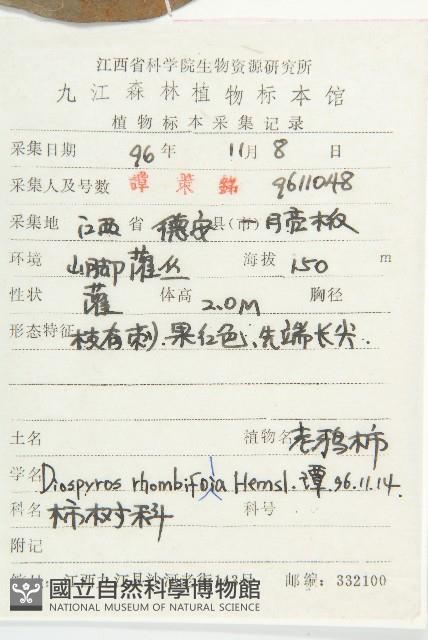 江西省科学院生物资源研究所
九江森林植物标本馆
植物标本采集记录
采集日期 96年 11月 8 日
采集人及号数 譚策銘 9611048
采集地 江西 省 德安 县(市) 月亮板
环境 山脚灌丛 海拔 150 m
性状 灌 体高 2.0M 胸径
形态特征 枝有刺.果红色、先端长尖.
土名 植物名 老鸦柿
学名 Diospyros rhombifolia Hemsl. 譚.96.11.14.
科名 柿树科 科号
附记
江西九江县沙河老街143号 邮编:332100
國立自然科學博物館
NATIONAL MUSEUM OF NATURAL SCIENCE